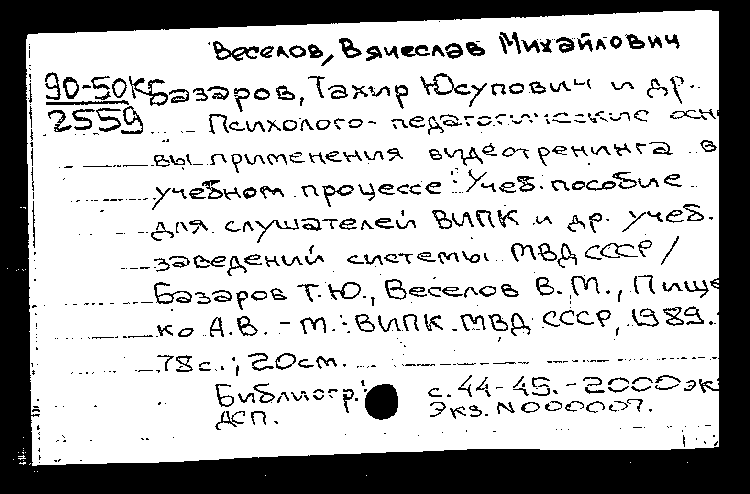 Веселов, Вячеслав Михайлович
90-50К Базаров, Тахир Юсупович и др.
2559 Психолого-педагогические осно
вы применения видеотренинга в
учебном процессе: Учеб. пособие
для слушателей ВИПК и др. учеб.
заведений системы МВД СССР /
Базаров Т.Ю., Веселов В.М., Пище
ко А.В. - М.: ВИПК МВД СССР, 1989.-
78 с.; 20 см.
Библиогр.: с. 44-45. - 2000 эк
ДСП. Экз. N 000007.